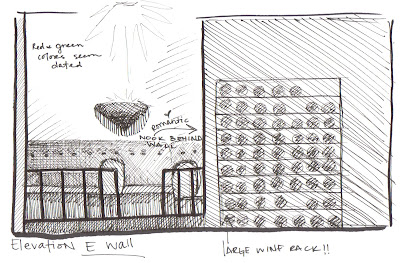 Red & green
colors seem
dated
Romantic
NOOK BEHIND
WALL
Elevation E Wall
LARGE WINE RACK!!